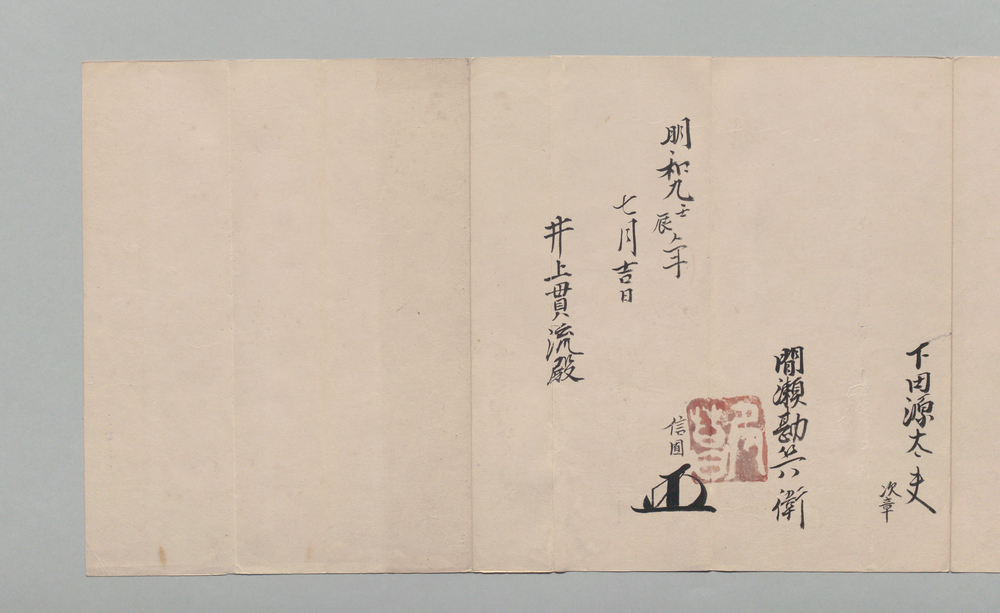 下田源太夫
次章
間瀬勘兵衛
信圓
明和九壬辰年
七月吉日
井上貫流殿